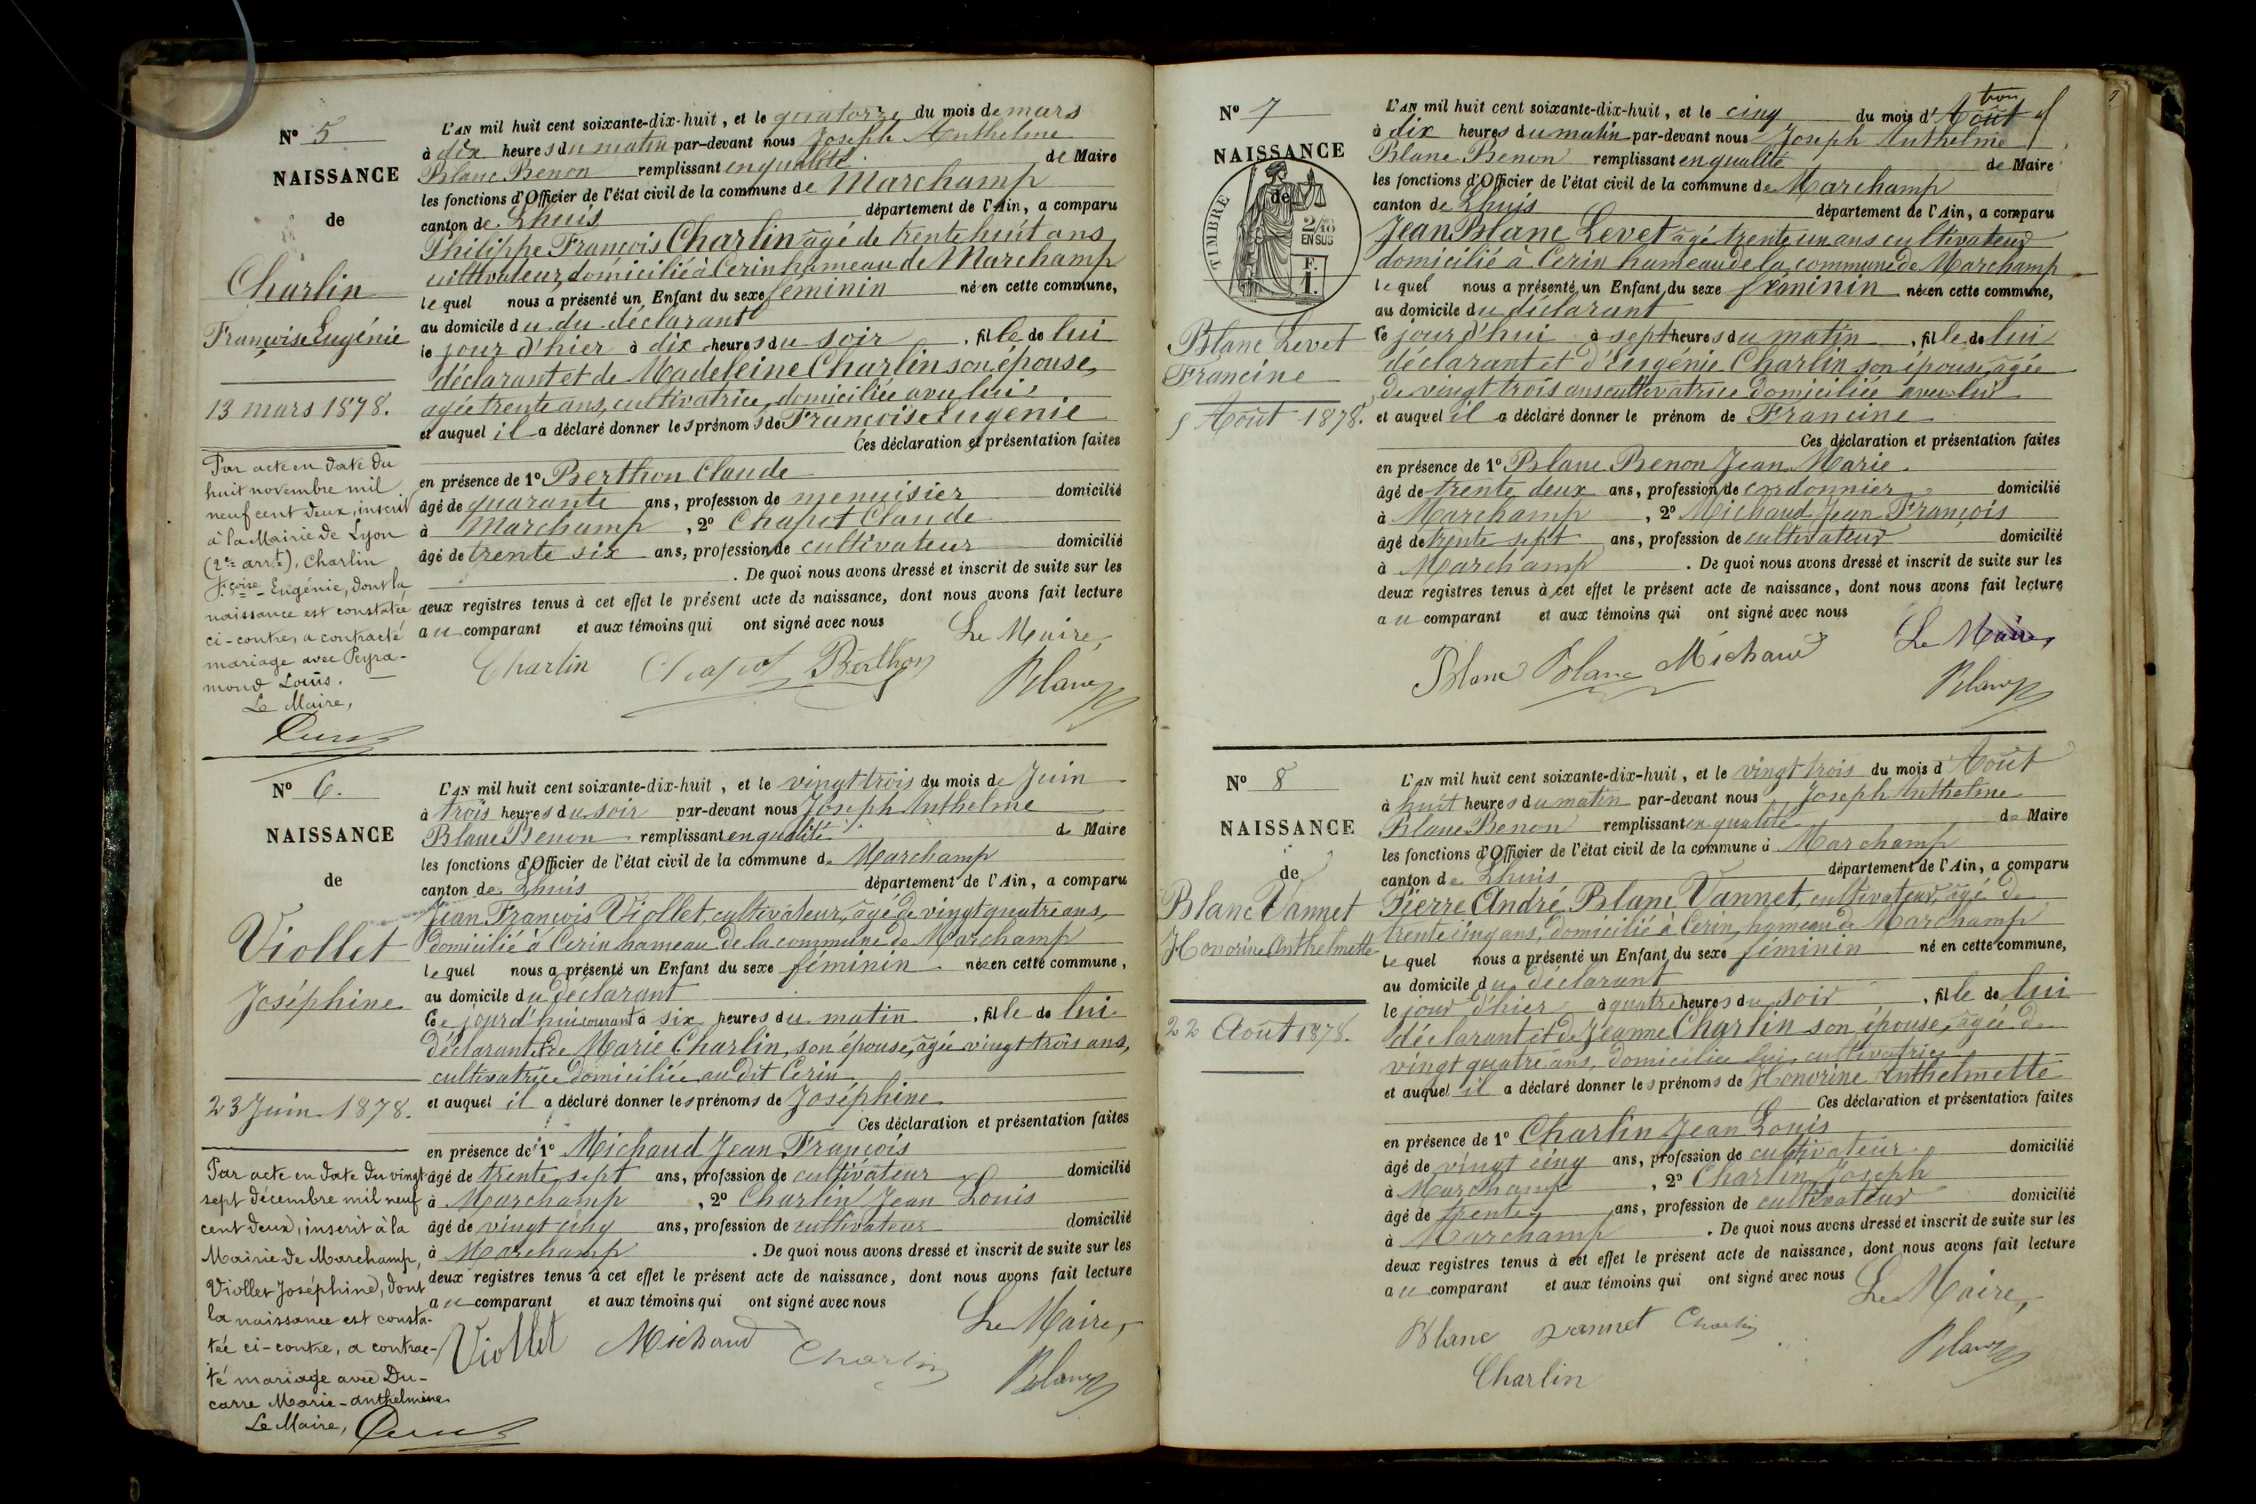 N° 5
NAISSANCE
de
Charlin
Françoise Eugénie
13 mars 1878.
Par acte en date du
huit novembre mil
neuf cent deux, inscrit
à la Mairie de Lyon
(2me arrt), Charlin
Fçoise Eugénie, dont la
naissance est constatée
ci-contre, a contracté
mariage avec Peyra-
mond Louis.
Le Maire,
L'AN mil huit cent soixante-dix-huit, et le quatorze du mois de mars
à dix heures du matin par-devant nous Joseph Anthelme
Blanc Benon remplissant en qualité de Maire
les fonctions d'Officier de l'état civil de la commune de Marchamp
canton de Lhuis département de l'Ain, a comparu
Philippe François Charlin âgé de trente huit ans
cultivateur, domicilié à Cerin hameau de Marchamp
lequel nous a présenté un Enfant du sexe féminin né en cette commune,
au domicile du du déclarant
le jour d'hier à dix heures du soir, fille de lui
déclarant et de Madeleine Charlin son épouse,
agée trente ans, cultivatrice, domiciliée avec lui
et auquel il a déclaré donner les prénoms de Françoise Eugénie
Ces déclaration et présentation faites
en présence de 1° Berthon Claude
âgé de quarante ans, profession de menuisier domicilié
à Marchamp, 2° Chapot Claude
âgé de trente six ans, profession de cultivateur domicilié
. De quoi nous avons dressé et inscrit de suite sur les
deux registres tenus à cet effet le présent acte de naissance, dont nous avons fait lecture
au comparant et aux témoins qui ont signé avec nous
Le Maire,
Charlin Chapot Berthon
Blanc
N° 6.
NAISSANCE
de
Viollet
Joséphine
23 Juin 1878.
Par acte en date du vingt
sept décembre mil neuf
cent deux, inscrit à la
Mairie de Marchamp,
Viollet Joséphine, dont
la naissance est consta-
tée ci-contre, a contrac-
té mariage avec Du-
carre Marie-anthelmine
Le Maire,
L'AN mil huit cent soixante-dix-huit, et le vingt trois du mois de Juin
à trois heures du soir par-devant nous Joseph Anthelme
Blanc Benon remplissant en qualité de Maire
les fonctions d'Officier de l'état civil de la commune de Marchamp
canton de Lhuis département de l'Ain, a comparu
Jean François Viollet, cultivateur, âgé de vingt quatre ans,
domicilié à Cerin hameau de la commune de Marchamp
lequel nous a présenté un Enfant du sexe féminin née en cette commune,
au domicile du déclarant
Ce jourd'hui courant à six heures du matin, fille de lui
déclarant et de Marie Charlin, son épouse, âgée vingt trois ans,
cultivatrice domiciliée au dit Cerin
et auquel il a déclaré donner les prénoms de Joséphine
Ces déclaration et présentation faites
en présence de 1° Michaud Jean François
âgé de trente sept ans, profession de cultivateur domicilié
à Marchamp, 2° Charlin Jean Louis
âgé de vingt cinq ans, profession de cultivateur domicilié
à Marchamp. De quoi nous avons dressé et inscrit de suite sur les
deux registres tenus à cet effet le présent acte de naissance, dont nous avons fait lecture
au comparant et aux témoins qui ont signé avec nous
Le Maire,
Viollet Michaud Charlin
Blanc
N° 7
NAISSANCE
de
TIMBRE
2/10
EN SUS
F.
1.
Blanc Levet
Francine
5 Août 1878.
L'AN mil huit cent soixante-dix-huit, et le cinq du mois d'Août
à dix heures du matin par-devant nous Joseph Anthelme
Blanc Benon remplissant en qualité de Maire
les fonctions d'Officier de l'état civil de la commune de Marchamp
canton de Lhuis département de l'Ain, a comparu
Jean Blanc Levet agé trente un ans cultivateur
domicilié à Cerin hameau de la commune de Marchamp
lequel nous a présenté un Enfant du sexe féminin née en cette commune,
au domicile du déclarant
Ce jourd'hui à sept heures du matin, fille de lui
déclarant et d'Eugénie Charlin son épouse, agée
de vingt trois ans cultivatrice domiciliée avec lui
et auquel il a déclaré donner le prénom de Francine
Ces déclaration et présentation faites
en présence de 1° Blanc Benon Jean Marie
âgé de trente deux ans, profession de cordonnier domicilié
à Marchamp, 2° Michaud Jean François
âgé de trente sept ans, profession de cultivateur domicilié
à Marchamp. De quoi nous avons dressé et inscrit de suite sur les
deux registres tenus à cet effet le présent acte de naissance, dont nous avons fait lecture
au comparant et aux témoins qui ont signé avec nous
Le Maire,
Blanc Blanc Michaud
Blanc
N° 8
NAISSANCE
de
Blanc Vannet
Honorine Anthelmette
22 Août 1878.
L'AN mil huit cent soixante-dix-huit, et le vingt trois du mois d'Août
à huit heures du matin par-devant nous Joseph Anthelme
Blanc Benon remplissant en qualité de Maire
les fonctions d'Officier de l'état civil de la commune à Marchamp
canton de Lhuis département de l'Ain, a comparu
Pierre André Blanc Vannet, cultivateur, âgé de
trente cinq ans, domicilié à Cerin, hameau de Marchamp
lequel nous a présenté un Enfant du sexe féminin né en cette commune,
au domicile du déclarant
le jour d'hier à quatre heures du soir, fille de lui
déclarant et de Jeanne Charlin son épouse, agée de
vingt quatre ans, domiciliée lui, cultivatrice
et auquel il a déclaré donner les prénoms de Honorine Anthelmette
Ces déclaration et présentation faites
en présence de 1° Charlin Jean Louis
âgé de vingt cinq ans, profession de cultivateur domicilié
à Marchamp, 2° Charlin Joseph
âgé de trente ans, profession de cultivateur domicilié
à Marchamp. De quoi nous avons dressé et inscrit de suite sur les
deux registres tenus à cet effet le présent acte de naissance, dont nous avons fait lecture
au comparant et aux témoins qui ont signé avec nous
Le Maire,
Blanc Vannet Charlin
Blanc
Charlin